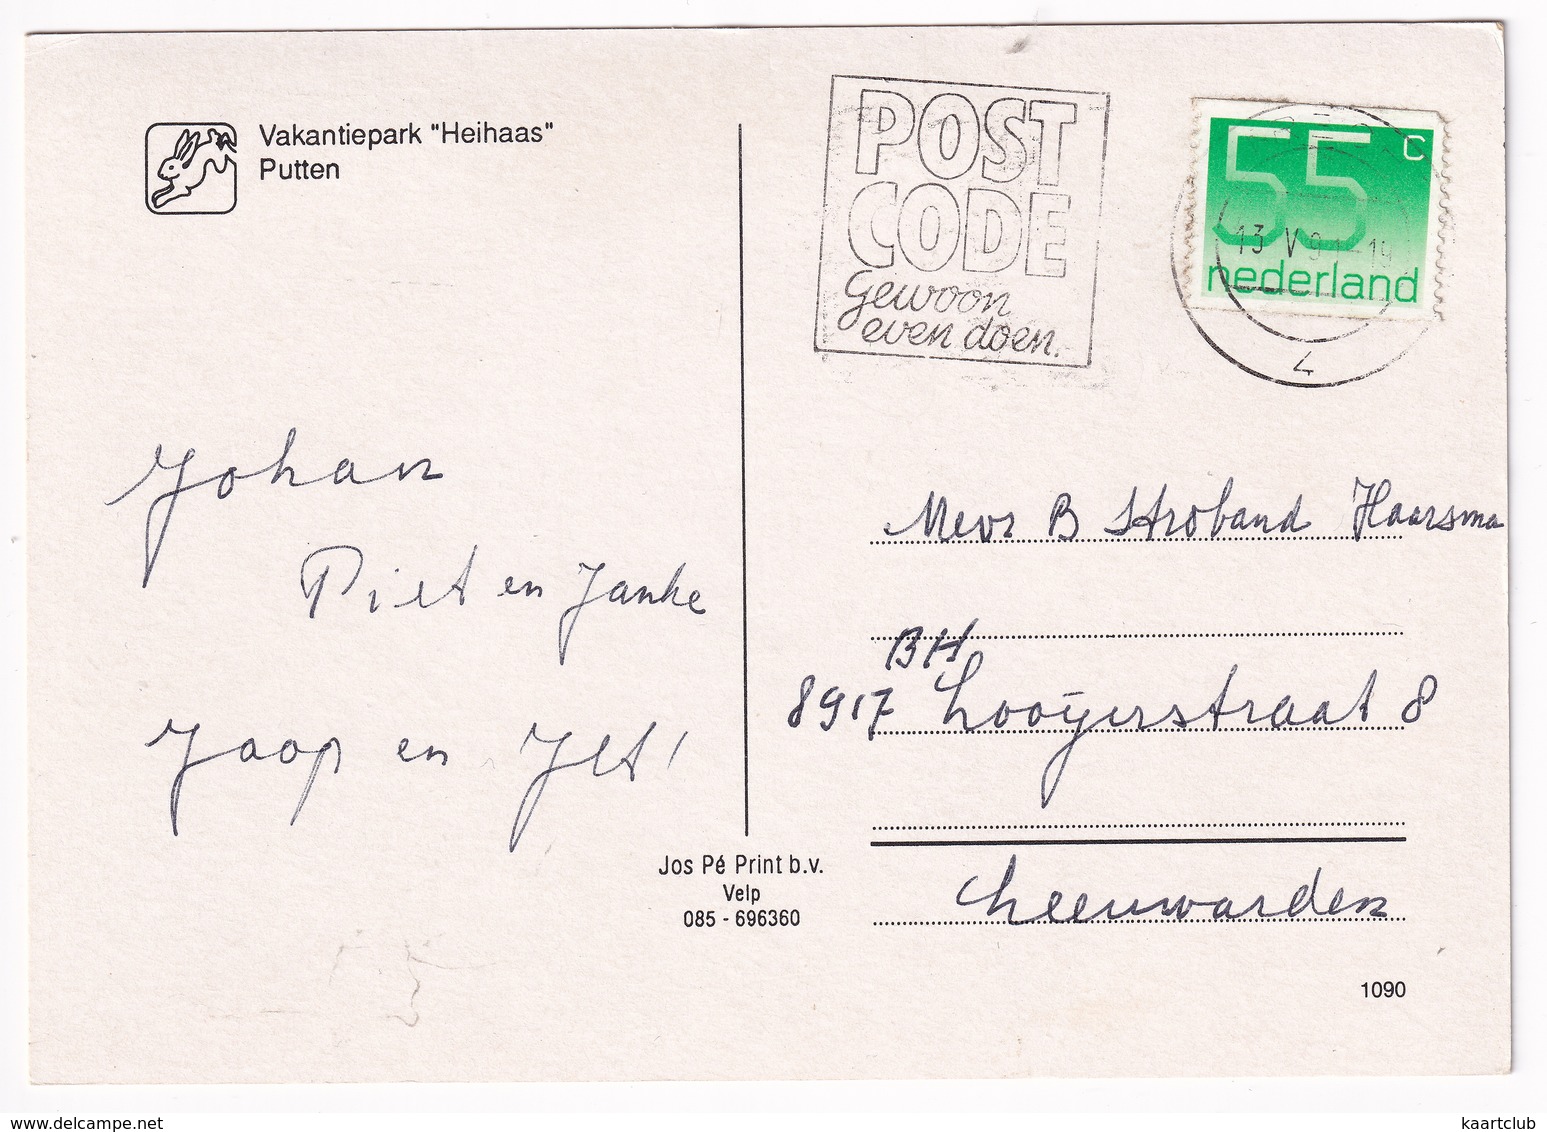 Vakantiepark "Heihaas"
Putten
POST
CODE
gewoon
even doen.
55 c
13 V 91-19
nederland
4
Johan
Piet en Janke
Jaap en Jet!
Mevr B Stroband Haarsma
BH
8917 Looijerstraat 8
Leeuwarden
Jos Pé Print b.v.
Velp
085 - 696360
1090
www.delcampe.net
kaartclub